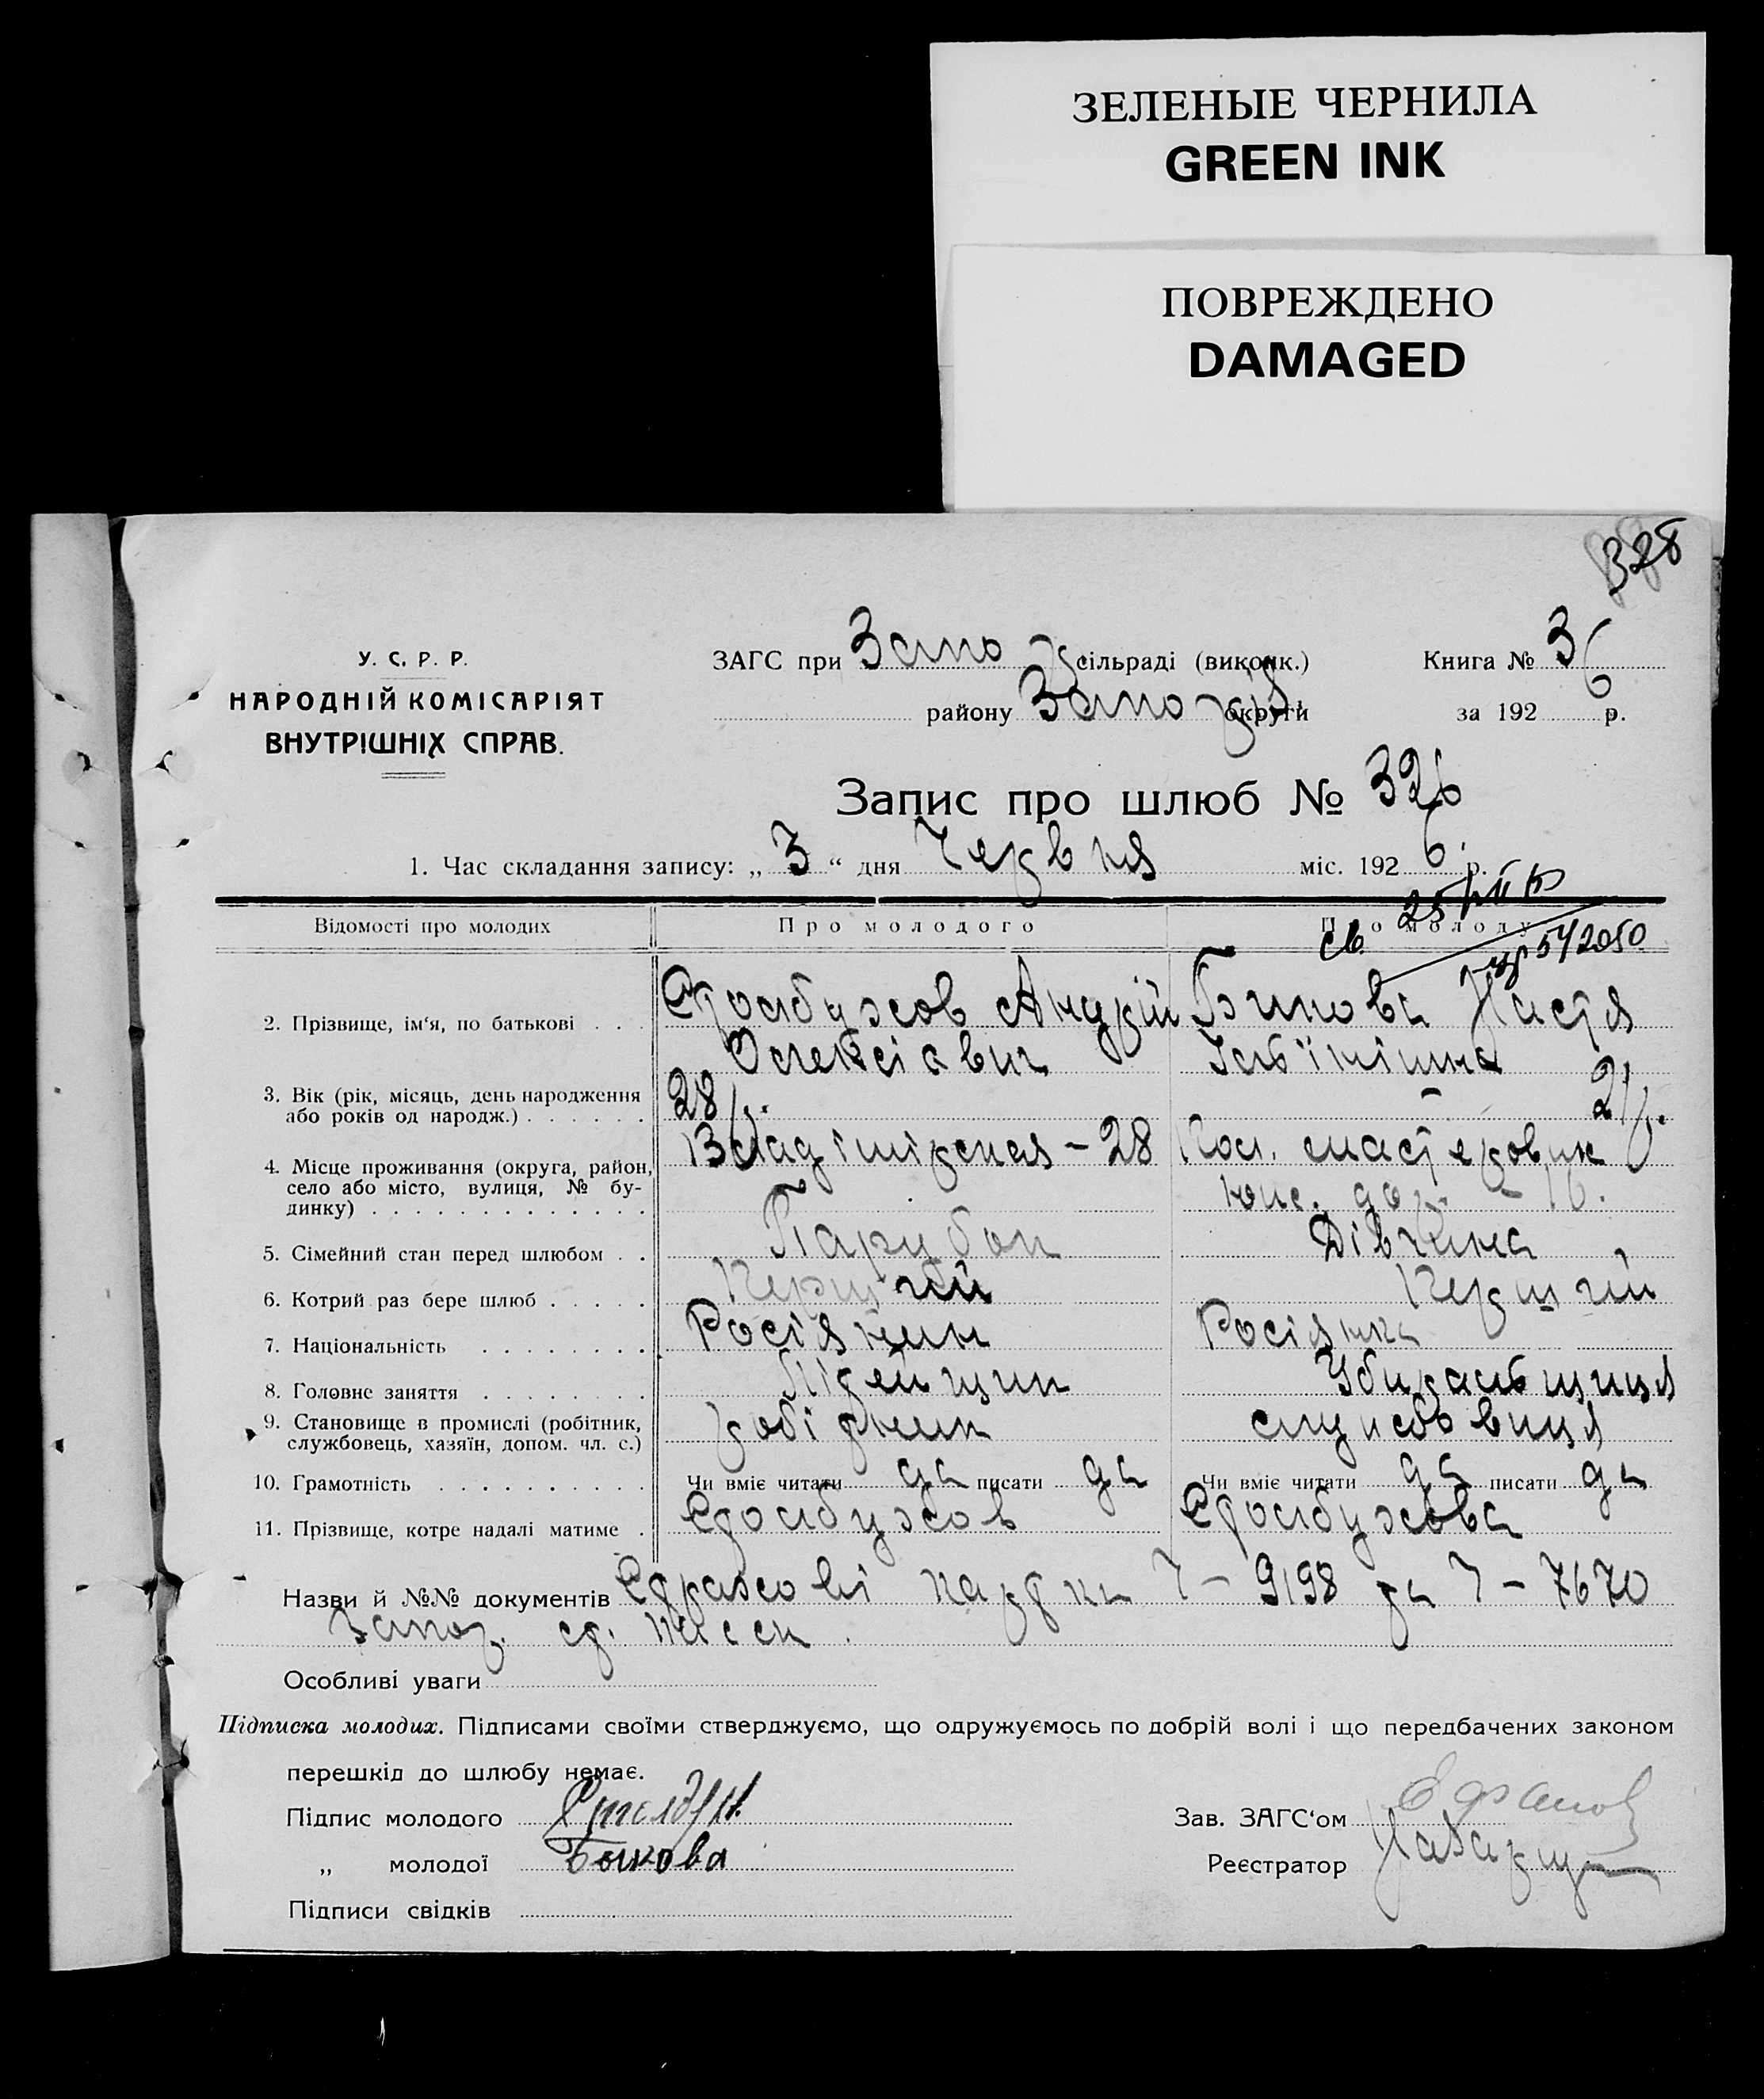 ЗЕЛЕНЫЕ ЧЕРНИЛА
GREEN INK
ПОВРЕЖДЕНО
DAMAGED
328
У. С. Р. Р.
НАРОДНІЙ КОМІСАРІЯТ
ВНУТРІШНІХ СПРАВ.
ЗАГС при Запо сільраді (виконк.)
району Запо округи
Книга № 3
за 1926 р.
Запис про шлюб № 326
1. Час складання запису: „ 3 “ дня Червня міс. 1926 р.
Відомості про молодих Про молодого Про молоду
54/2050
2. Прізвище, ім‘я, по батькові . . . Столбужов Андрій Бикова Настя
Олексієвич
3. Вік (рік, місяць, день народження
або років од народж.) . . . . . . 28 р. 21 р.
4. Місце проживання (округа, район, Владімірская - 28
село або місто, вулиця, № бу-
динку) . . . . . . . . . . . . .
5. Сімейний стан перед шлюбом . . Парубок Дівчина
6. Котрий раз бере шлюб . . . . . Перший Перший
7. Національність . . . . . . . . Росіянин Росіянка
8. Головне заняття . . . . . . . . Літейщик Убиральщиця
9. Становище в промислі (робітник,
службовець, хазяїн, допом. чл. с.) робітник службовиця
10. Грамотність . . . . . . . . . . Чи вміє читати да писати да Чи вміє читати да писати да
11. Прізвище, котре надалі матиме . Столбужов Столбужова
Назви й №№ документів Страхові картки 7 - 9198 та 7 - 7670
Запор. ст. каси
Особливі уваги
Підписка молодих. Підписами своїми стверджуємо, що одружуємось по добрій волі і що передбачених законом
перешкід до шлюбу немає.
Підпис молодого
Зав. ЗАГС‘ом
„ молодої Быкова
Реєстратор
Підписи свідків